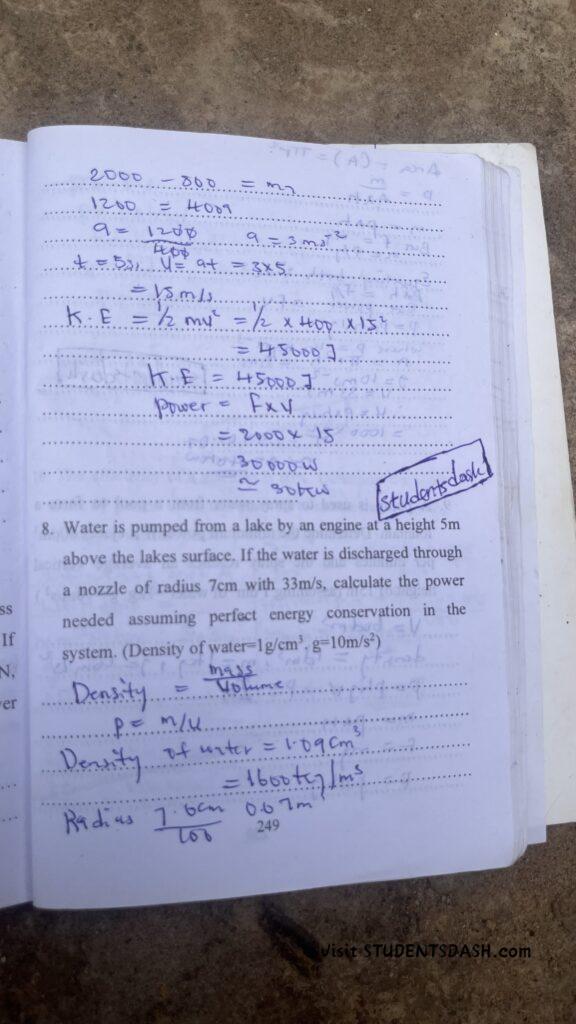 2000 - 800 = ma
1200 = 400a
a = 1200/400 a = 3ms⁻²
t = 5s, V = at = 3x5
= 15m/s
K.E = 1/2 mv² = 1/2 x 400 x 15²
= 45000J
K.E = 45000J
Power = F x V
= 2000 x 15
30000W
≃ 30KW
Studentsdash
8. Water is pumped from a lake by an engine at a height 5m
above the lakes surface. If the water is discharged through
a nozzle of radius 7cm with 33m/s, calculate the power
needed assuming perfect energy conservation in the
system. (Density of water=1g/cm³, g=10m/s²)
Density = mass/Volume
ρ = m/v
Density of water = 1.0gcm³
= 1000kg/m³
Radius 7.0cm/100 0.07m
249
ss
If
N,
er
Visit STUDENTSDASH.com